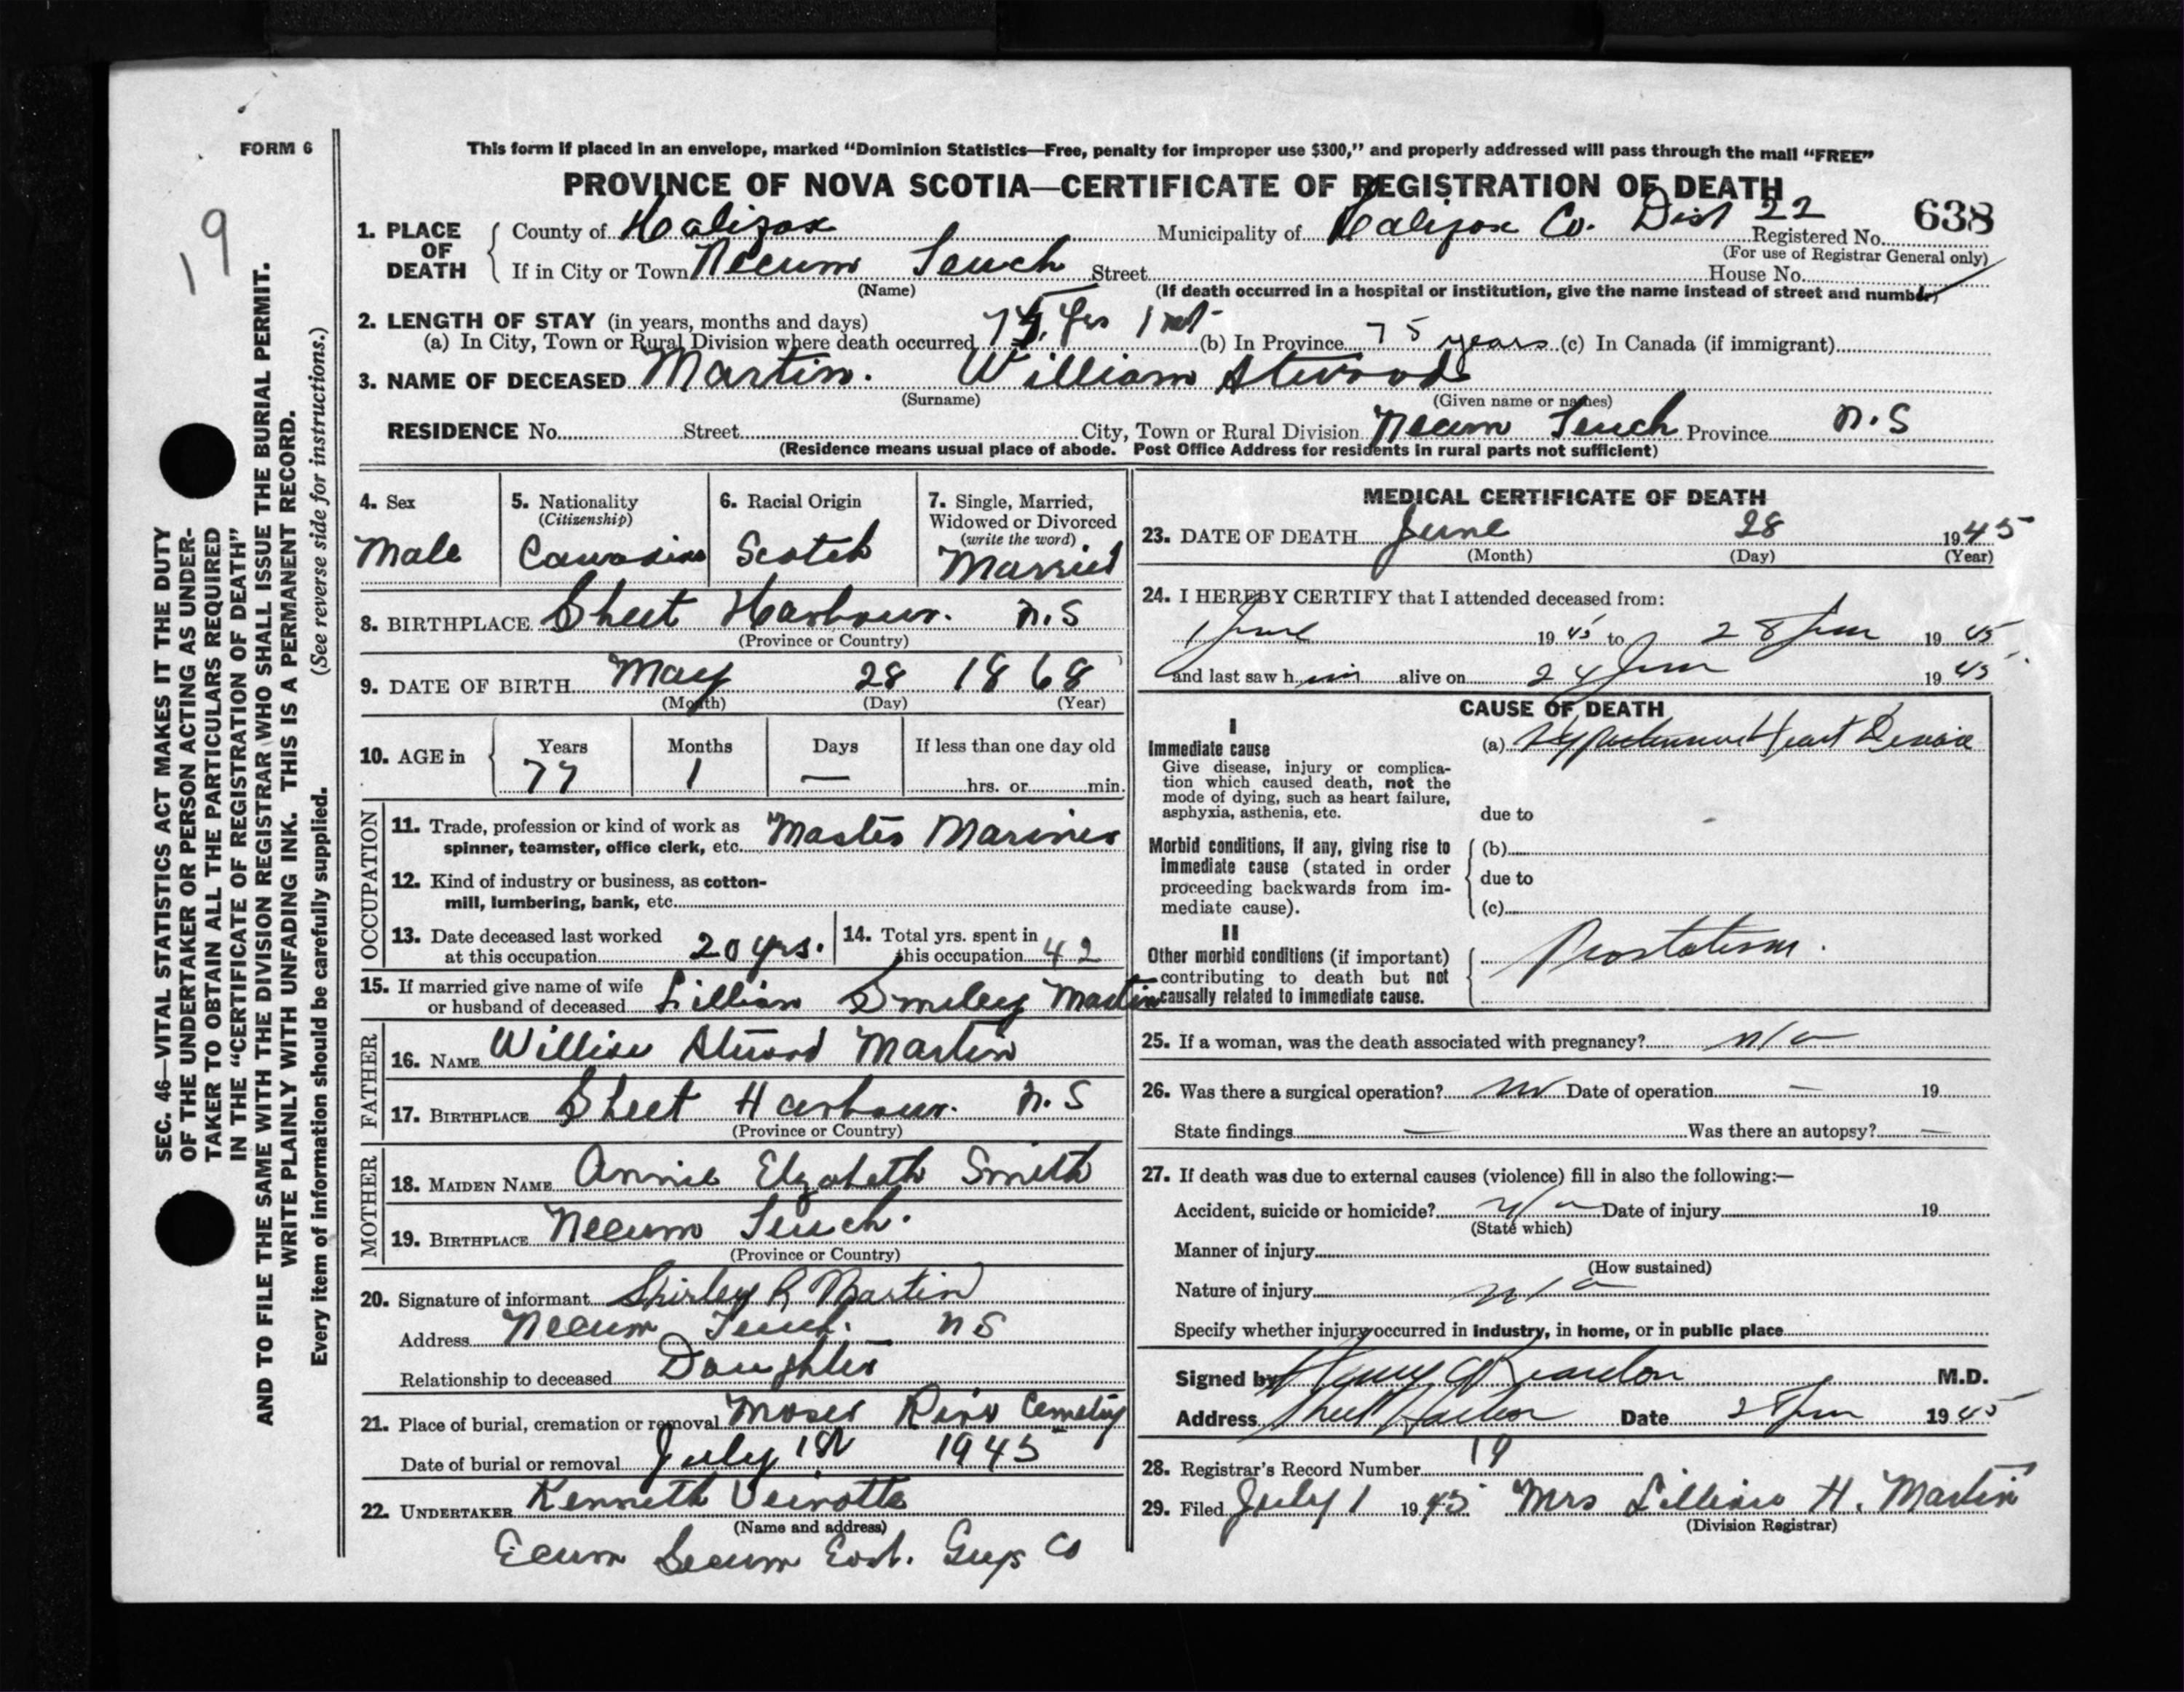 FORM 6
19
This form if placed in an envelope, marked “Dominion Statistics—Free, penalty for improper use $300,” and properly addressed will pass through the mail “FREE”
PROVINCE OF NOVA SCOTIA—CERTIFICATE OF REGISTRATION OF DEATH
1. PLACE OF DEATH County of Halifax Municipality of Halifax Co. Dist 22 Registered No. 638
(For use of Registrar General only)
If in City or Town Necum Teuch Street House No.
(Name) (If death occurred in a hospital or institution, give the name instead of street and number)
2. LENGTH OF STAY (in years, months and days)
(a) In City, Town or Rural Division where death occurred 75 yrs 1 mt (b) In Province 75 years (c) In Canada (if immigrant)
3. NAME OF DECEASED Martin. William Atwood
(Surname) (Given name or names)
RESIDENCE No. Street City, Town or Rural Division Necum Teuch Province N.S
(Residence means usual place of abode. Post Office Address for residents in rural parts not sufficient)
4. Sex Male
5. Nationality (Citizenship) Canadian
6. Racial Origin Scotch
7. Single, Married, Widowed or Divorced (write the word) Married
8. BIRTHPLACE Sheet Harbour. N.S
(Province or Country)
9. DATE OF BIRTH May 28 1868
(Month) (Day) (Year)
10. AGE in Years 77 Months 1 Days — If less than one day old
hrs. or min.
OCCUPATION
11. Trade, profession or kind of work as spinner, teamster, office clerk, etc. Master Mariner
12. Kind of industry or business, as cotton-mill, lumbering, bank, etc.
13. Date deceased last worked at this occupation 20 yrs.
14. Total yrs. spent in this occupation 42
15. If married give name of wife or husband of deceased Lillian Smiley Martin
FATHER
16. NAME William Atwood Martin
17. BIRTHPLACE Sheet Harbour. N.S
(Province or Country)
MOTHER
18. MAIDEN NAME Annie Elizabeth Smith
19. BIRTHPLACE Necum Teuch.
(Province or Country)
20. Signature of informant Shirley R Martin
Address Necum Teuch. NS
Relationship to deceased Daughter
21. Place of burial, cremation or removal Moser River Cemetery
Date of burial or removal July 1st 1945
22. UNDERTAKER Kenneth Veinotte
(Name and address)
Ecum Secum East. Guys Co
MEDICAL CERTIFICATE OF DEATH
23. DATE OF DEATH June 28 1945
(Month) (Day) (Year)
24. I HEREBY CERTIFY that I attended deceased from:
1 June 1945 to 28 June 1945
and last saw him alive on 24 June 1945
CAUSE OF DEATH
I
Immediate cause (a) Heart Disease
Give disease, injury or complication which caused death, not the mode of dying, such as heart failure, asphyxia, asthenia, etc.
due to
Morbid conditions, if any, giving rise to immediate cause (stated in order proceeding backwards from immediate cause).
(b)
due to
(c)
II
Other morbid conditions (if important) contributing to death but not causally related to immediate cause. Prostatism.
25. If a woman, was the death associated with pregnancy? n/a
26. Was there a surgical operation? no Date of operation — 19
State findings — Was there an autopsy? —
27. If death was due to external causes (violence) fill in also the following:—
Accident, suicide or homicide? n/a Date of injury 19
(State which)
Manner of injury
(How sustained)
Nature of injury n/a
Specify whether injury occurred in industry, in home, or in public place
Signed by Henry Reardon M.D.
Address Sheet Harbor Date 28 June 1945
28. Registrar’s Record Number 19
29. Filed July 1 1945 Mrs Lillian H. Martin
(Division Registrar)
SEC. 46—VITAL STATISTICS ACT MAKES IT THE DUTY
OF THE UNDERTAKER OR PERSON ACTING AS UNDER-
TAKER TO OBTAIN ALL THE PARTICULARS REQUIRED
IN THE “CERTIFICATE OF REGISTRATION OF DEATH”
AND TO FILE THE SAME WITH THE DIVISION REGISTRAR WHO SHALL ISSUE THE BURIAL PERMIT.
WRITE PLAINLY WITH UNFADING INK. THIS IS A PERMANENT RECORD.
Every item of information should be carefully supplied. (See reverse side for instructions.)